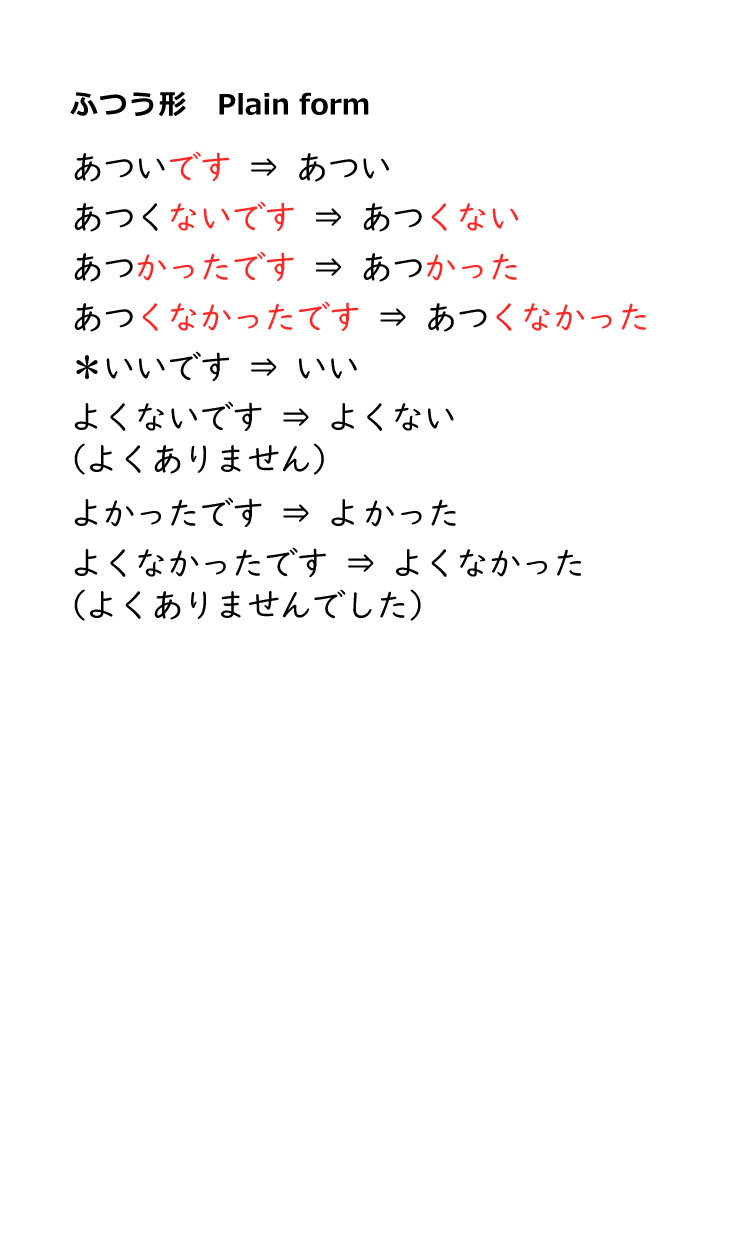 ふつう形　Plain form
あついです ⇒ あつい
あつくないです ⇒ あつくない
あつかったです ⇒ あつかった
あつくなかったです ⇒ あつくなかった
＊いいです ⇒ いい
よくないです ⇒ よくない
(よくありません)
よかったです ⇒ よかった
よくなかったです ⇒ よくなかった
(よくありませんでした)